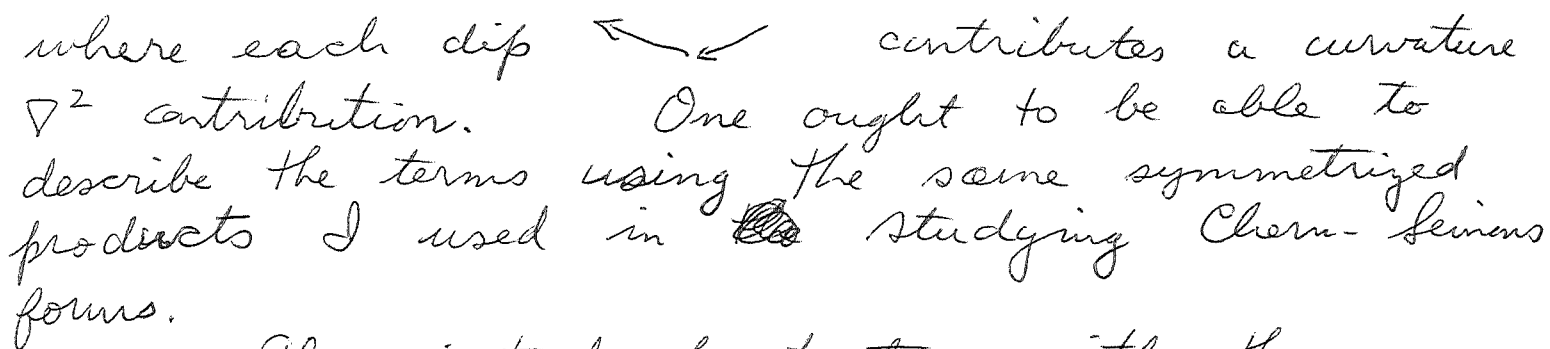 where each dip contributes a curvature
∇² contribution. One ought to be able to
describe the terms using the same symmetrized
products I used in studying Chern-Simons
forms.